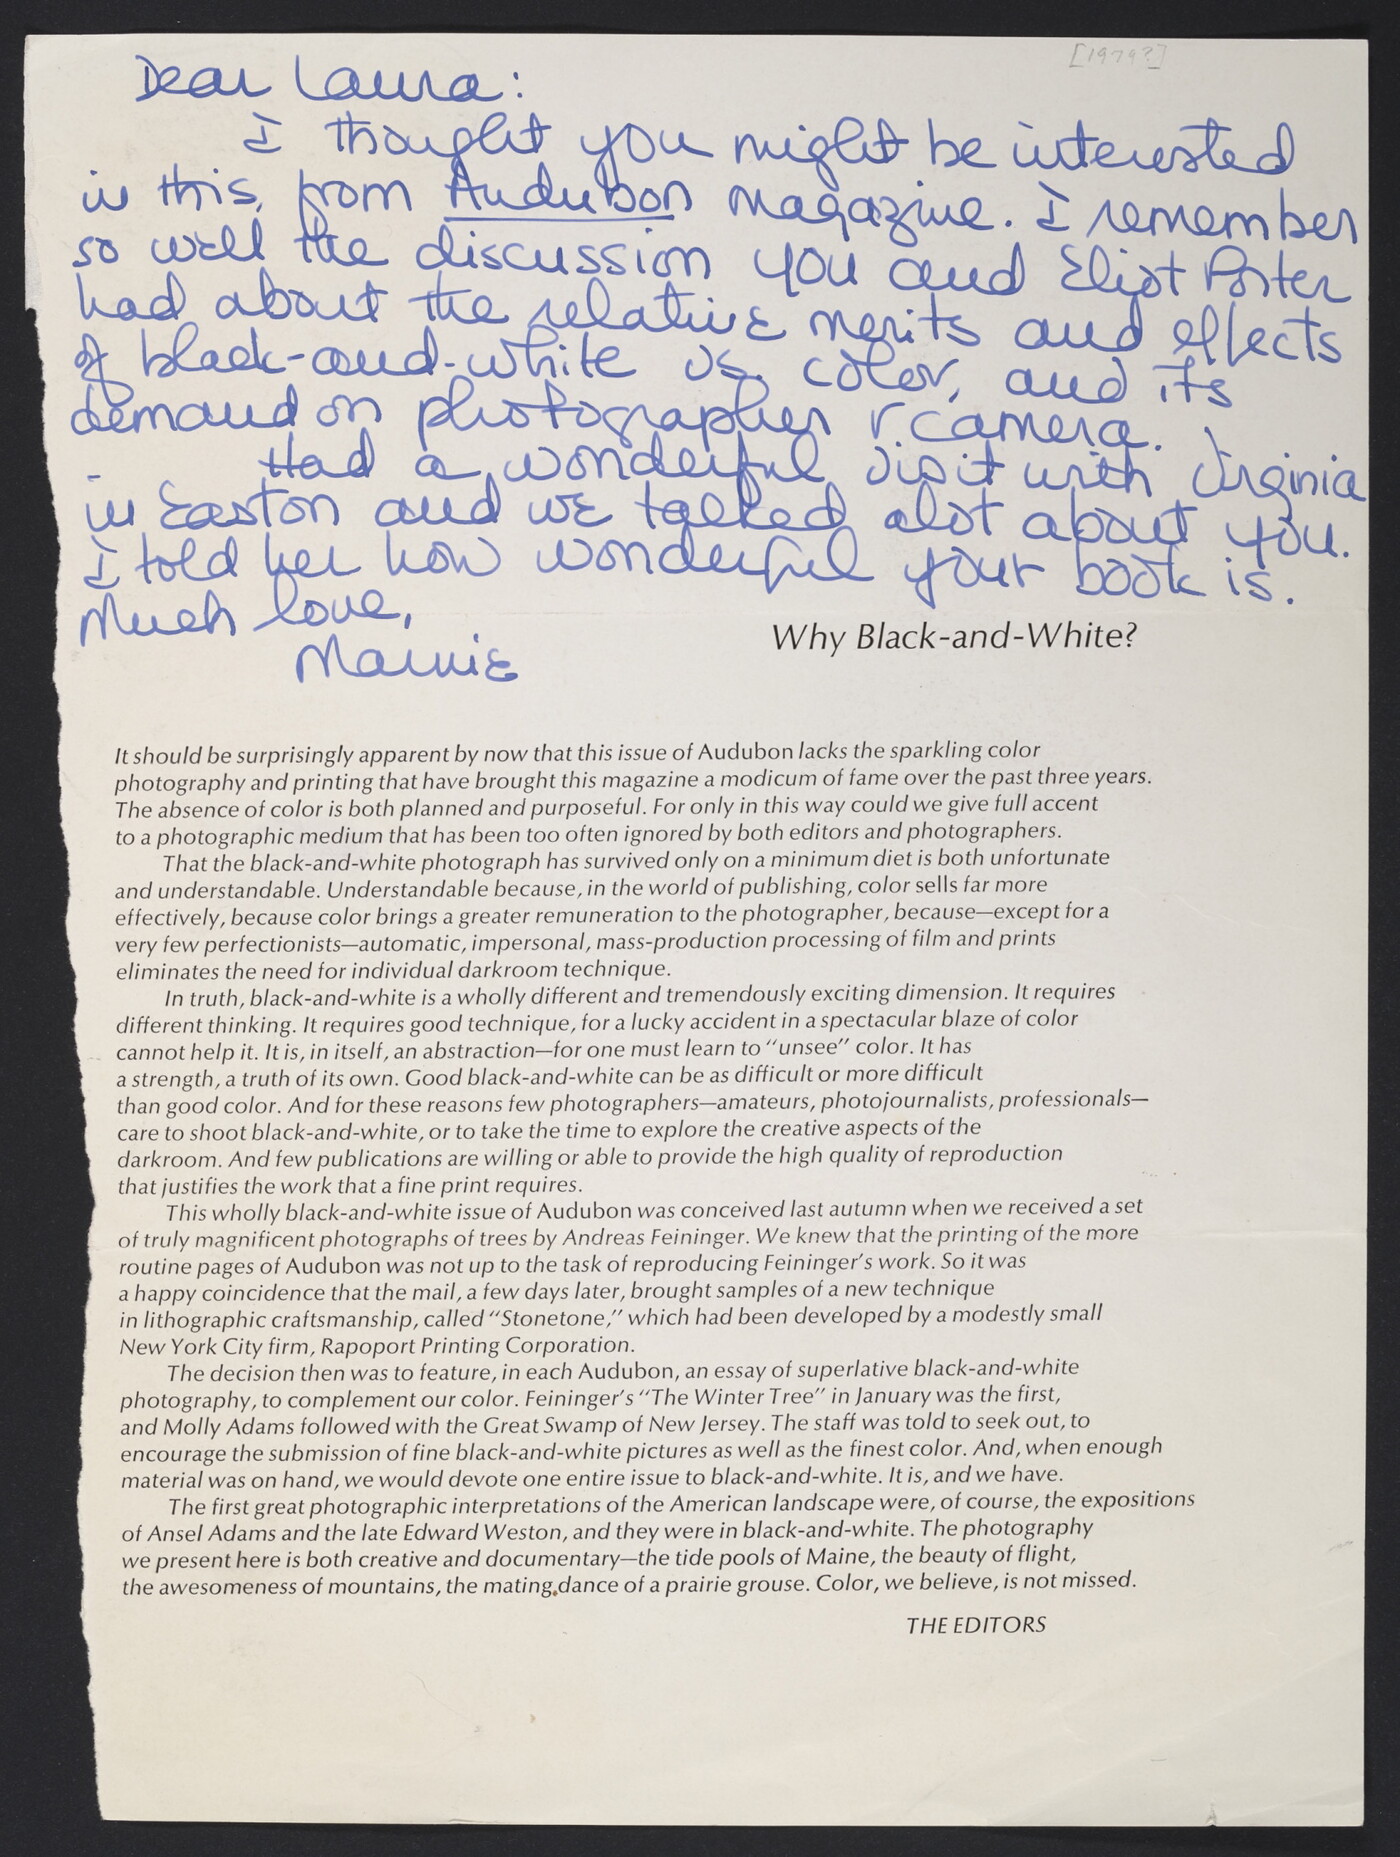 [1979?]
Dear Laura:
I thought you might be interested
in this, from Audubon magazine. I remember
so well the discussion you and Eliot Porter
had about the relative merits and effects
of black-and-white vs. color, and its
demand on photographer v. camera.
Had a wonderful visit with Virginia
in Easton and we talked alot about you.
I told her how wonderful your book is.
Much love,
Marnie
Why Black-and-White?
It should be surprisingly apparent by now that this issue of Audubon lacks the sparkling color
photography and printing that have brought this magazine a modicum of fame over the past three years.
The absence of color is both planned and purposeful. For only in this way could we give full accent
to a photographic medium that has been too often ignored by both editors and photographers.
That the black-and-white photograph has survived only on a minimum diet is both unfortunate
and understandable. Understandable because, in the world of publishing, color sells far more
effectively, because color brings a greater remuneration to the photographer, because—except for a
very few perfectionists—automatic, impersonal, mass-production processing of film and prints
eliminates the need for individual darkroom technique.
In truth, black-and-white is a wholly different and tremendously exciting dimension. It requires
different thinking. It requires good technique, for a lucky accident in a spectacular blaze of color
cannot help it. It is, in itself, an abstraction—for one must learn to “unsee” color. It has
a strength, a truth of its own. Good black-and-white can be as difficult or more difficult
than good color. And for these reasons few photographers—amateurs, photojournalists, professionals—
care to shoot black-and-white, or to take the time to explore the creative aspects of the
darkroom. And few publications are willing or able to provide the high quality of reproduction
that justifies the work that a fine print requires.
This wholly black-and-white issue of Audubon was conceived last autumn when we received a set
of truly magnificent photographs of trees by Andreas Feininger. We knew that the printing of the more
routine pages of Audubon was not up to the task of reproducing Feininger’s work. So it was
a happy coincidence that the mail, a few days later, brought samples of a new technique
in lithographic craftsmanship, called “Stonetone,” which had been developed by a modestly small
New York City firm, Rapoport Printing Corporation.
The decision then was to feature, in each Audubon, an essay of superlative black-and-white
photography, to complement our color. Feininger’s “The Winter Tree” in January was the first,
and Molly Adams followed with the Great Swamp of New Jersey. The staff was told to seek out, to
encourage the submission of fine black-and-white pictures as well as the finest color. And, when enough
material was on hand, we would devote one entire issue to black-and-white. It is, and we have.
The first great photographic interpretations of the American landscape were, of course, the expositions
of Ansel Adams and the late Edward Weston, and they were in black-and-white. The photography
we present here is both creative and documentary—the tide pools of Maine, the beauty of flight,
the awesomeness of mountains, the mating dance of a prairie grouse. Color, we believe, is not missed.
THE EDITORS